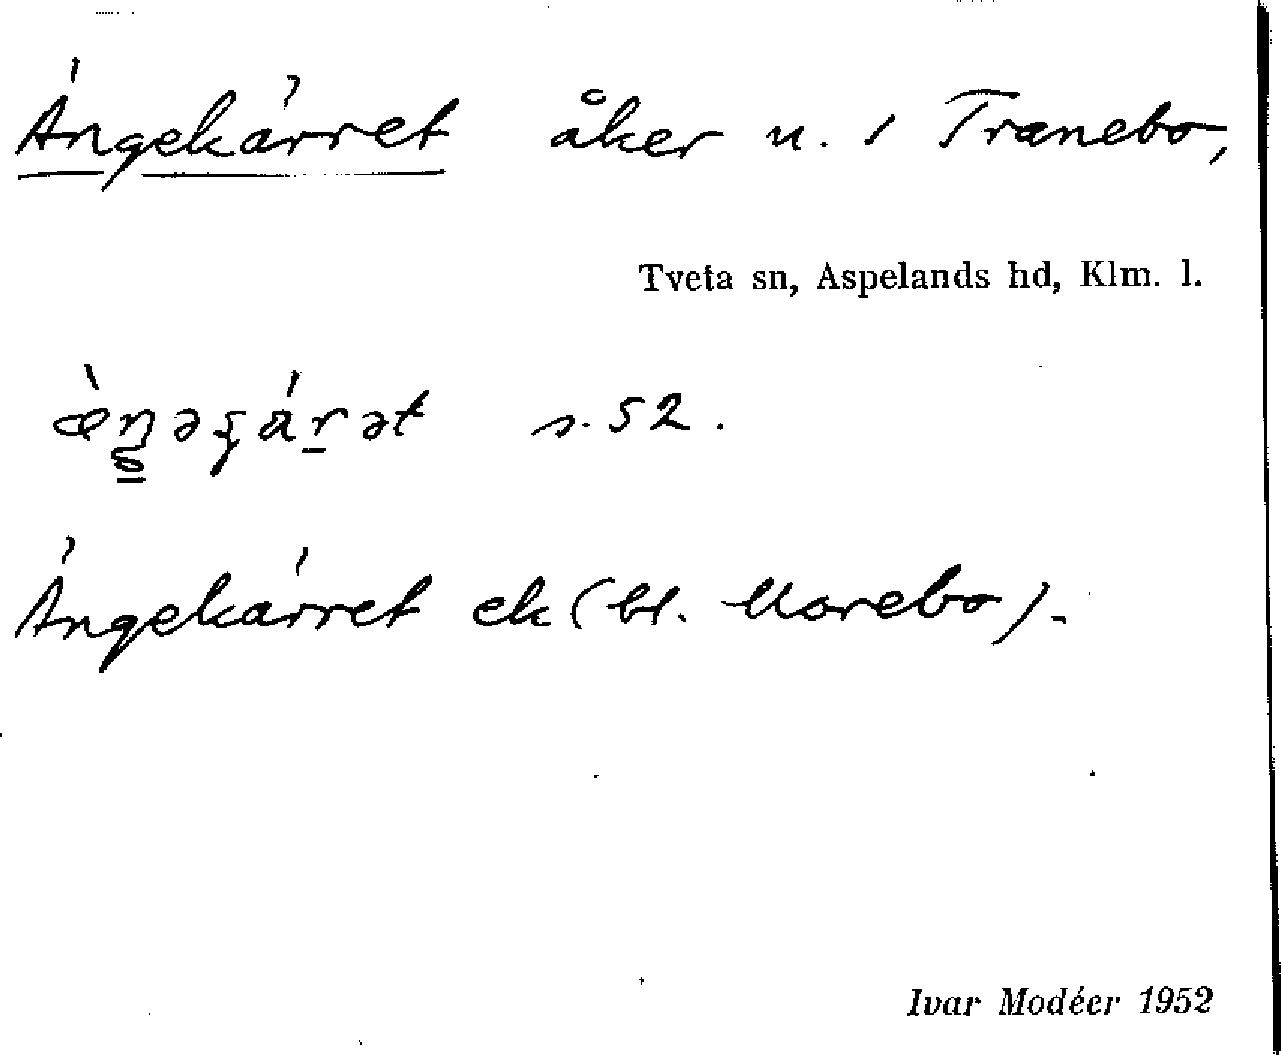 Ängekärret åker n. i Tranebo,
Tveta sn, Aspelands hd, Klm. l.
s. 52.
Ängekärret ek (bl. Morebo).
Ivar Modéer 1952